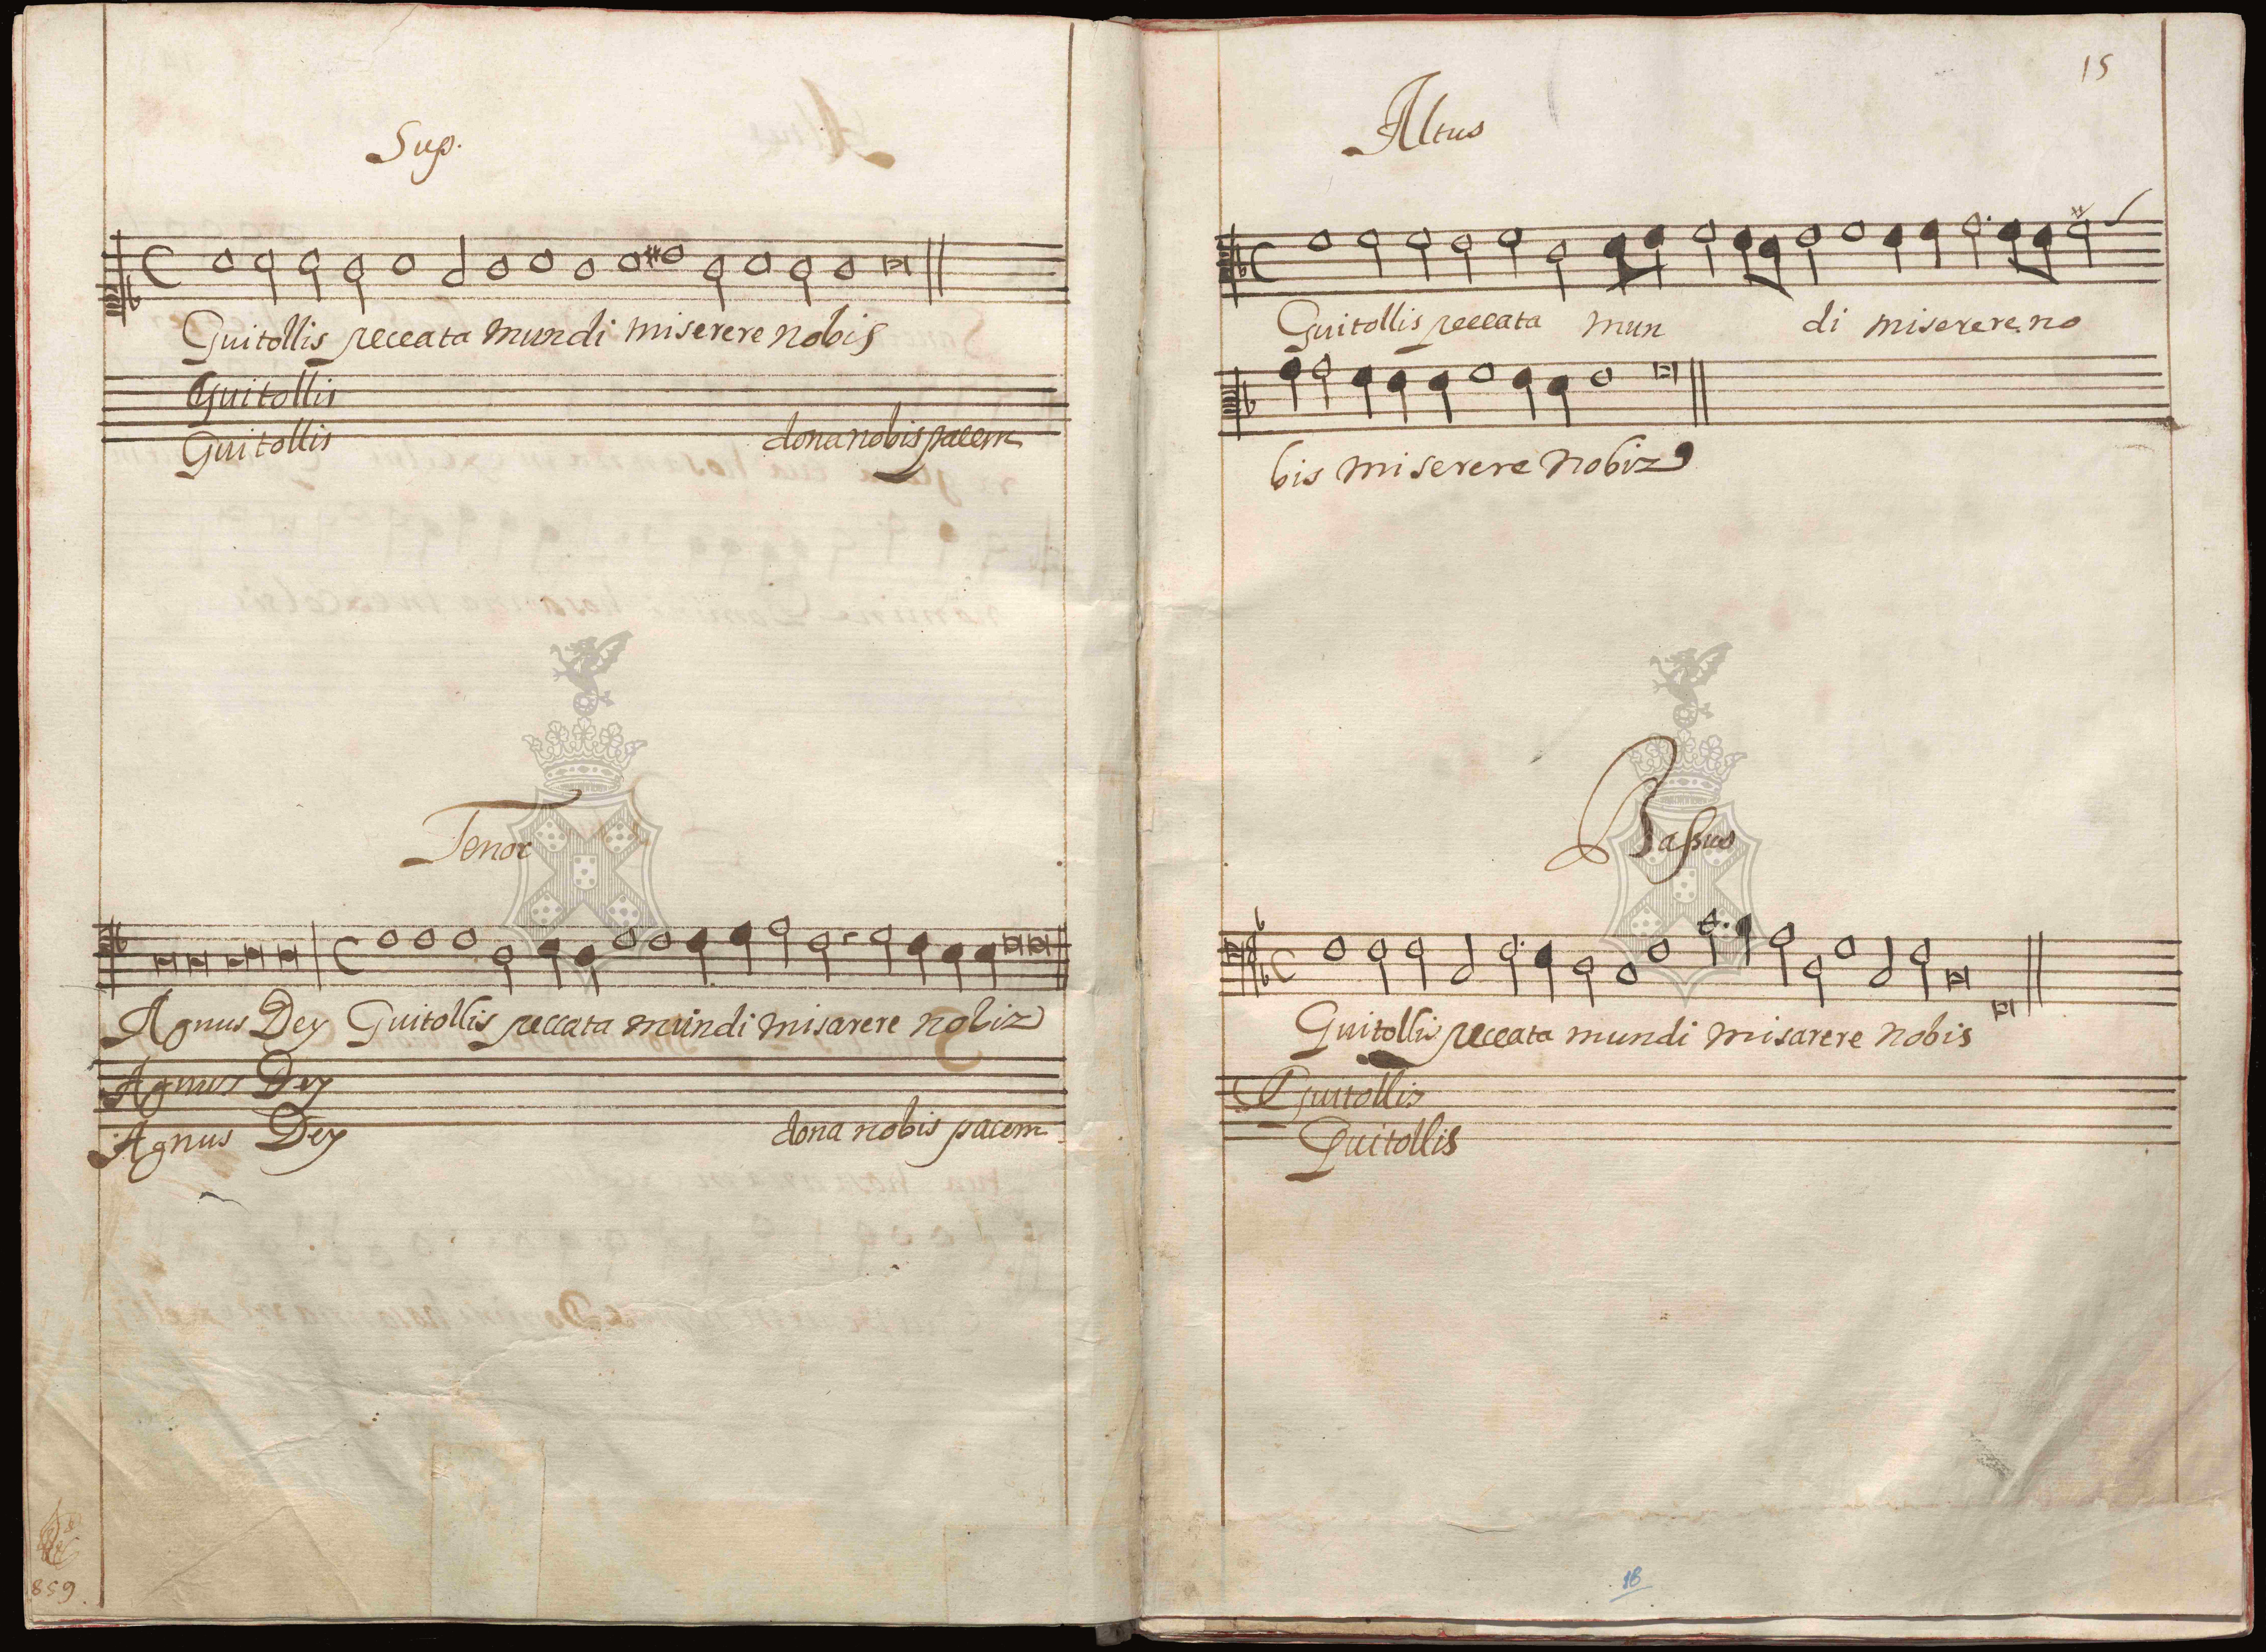 Sup.
Guitollis peccata mundi miserere nobis
Guitollis
Guitollis dona nobis pacem
Tenor
Agnus Dey Guitollis peccata mundi misarere nobiz
Agnus Dey
Agnus Dey dona nobis pacem
859
15
Altus
Guitollis peccata mun di miserere no
bis miserere nobiz
Bassus
Guitollis peccata mundi misarere nobis
Guitollis
Guitollis
18